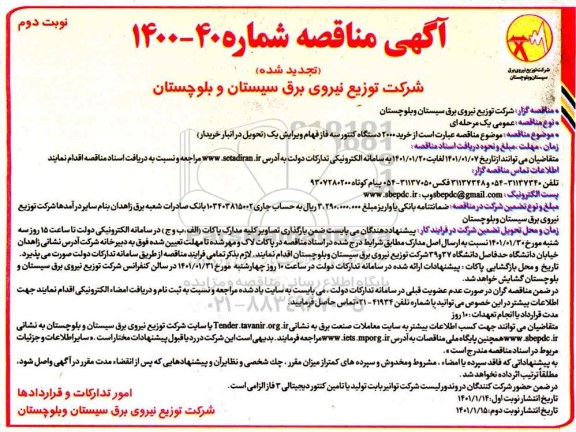 نوبت دوم
آگهی مناقصه شماره ۴۰-۱۴۰۰
(تجدید شده)
شرکت توزیع نیروی برق سیستان و بلوچستان
شرکت توزیع نیروی برق
سیستان و بلوچستان
* مناقصه گزار: شرکت توزیع نیروی برق سیستان و بلوچستان
* نوع مناقصه: عمومی یک مرحله ای
* موضوع مناقصه: موضوع مناقصه عبارت است از خرید ۲۰۰۰ دستگاه کنتور سه فاز فهام ویرایش یک (تحویل در انبار خریدار)
زمان، مهلت، مبلغ و نحوه دریافت اسناد مناقصه:
متقاضیان می توانند از تاریخ ۱۴۰۱/۰۱/۰۷ لغایت ۱۴۰۱/۰۱/۲۰ به سامانه الکترونیکی تدارکات دولت به آدرس www.setadiran.ir مراجعه و نسبت به دریافت اسناد مناقصه اقدام نمایند
اطلاعات تماس مناقصه گزار:
تلفن ۳۱۱۳۷۳۴۰-۰۵۴ و ۳۱۱۳۷۳۴۸ فکس ۳۱۱۳۷۰۵۰-۰۵۴ پیام کوتاه ۹۳۰۷۲۸۰۲۰۰
پست الکترونیک: sbepdc@gmail.com وب: www.sbepdc.ir
مبلغ و نوع تضمین شرکت در مناقصه: ضمانتنامه بانکی یا واریز مبلغ ۳,۲۹۰,۰۰۰,۰۰۰ ریال به حساب جاری ۰۱۰۳۴۰۳۸۱۵۰۰۲ بانک صادرات شعبه برق زاهدان بنام سایر درآمدها شرکت توزیع
نیروی برق سیستان و بلوچستان
زمان و محل تحویل تضمین شرکت در فرایند کار: پیشنهاددهندگان می بایست ضمن بارگذاری تصاویر کلیه مدارک پاکات (الف، ب و ج) در سامانه الکترونیکی دولت تا ساعت ۱۵ روز سه
شنبه مورخ ۱۴۰۱/۰۱/۳۰ نسبت به ارسال اصل مدارک مطابق شرایط درج شده در اسناد مناقصه در پاکات لاک و مهر شده تا مهلت تعیین شده فوق به دبیرخانه شرکت آدرس نشانی زاهدان
خیابان دانشگاه حدفاصل دانشگاه ۳۷ و ۳۹ شرکت توزیع نیروی برق سیستان و بلوچستان اقدام نمایند. لازم بذکر تمامی فرایند مناقصه از طریق سامانه تدارکات دولت صورت می پذیرد.
تاریخ و محل بازگشایی پاکات: پیشنهادات ارائه شده در سامانه تدارکات دولت در ساعت ۱۰ روز چهارشنبه مورخ ۱۴۰۱/۰۱/۳۱ در سالن کنفرانس شرکت توزیع نیروی برق سیستان و
بلوچستان گشایش خواهد شد.
در ضمن مناقصه گران در صورت عدم عضویت قبلی در سامانه تدارکات دولت، می بایست به سایت یاد شده مراجعه و نسبت به ثبت نام و دریافت امضاء الکترونیکی اقدام نمایند جهت
اطلاعات بیشتر در این خصوص می توانید با شماره تلفن ۴۱۹۳۴-۰۲۱ تماس حاصل فرمایید.
مدت قرارداد یا انجام تعهدات: ۱۰ روز
متقاضیان می توانند جهت کسب اطلاعات بیشتر به سایت معاملات صنعت برق به نشانی Tender.tavanir.org.ir یا سایت شرکت توزیع نیروی برق سیستان و بلوچستان به نشانی
www.sbepdc.ir همچنین پایگاه ملی مناقصات به آدرس www.iets.mporg.ir مراجعه فرمایند. بدیهی است این شرکت در رد یا قبول پیشنهادات مختار است. سایر اطلاعات و جزئیات
مربوط در اسناد مناقصه مندرج است.
به پیشنهاداتی که فاقد سپرده یا امضاء، مشروط و مخدوش و سپرده های کمتر از میزان مقرر، چک شخصی و نظایر آن و پیشنهادهایی که پس از انقضاء مدت مقرر در آگهی واصل شود،
مطلقاً ترتیب اثر داده نخواهد شد.
در ضمن حضور شرکت کنندگان در وندور لیست شرکت توانیر بابت تولید یا تامین کنتور دیجیتالی ۳ فاز الزامی است.
تاریخ انتشار نوبت اول: ۱۴۰۱/۱/۱۴
تاریخ انتشار نوبت دوم: ۱۴۰۱/۱/۱۵
امور تدارکات و قراردادها
شرکت توزیع نیروی برق سیستان و بلوچستان